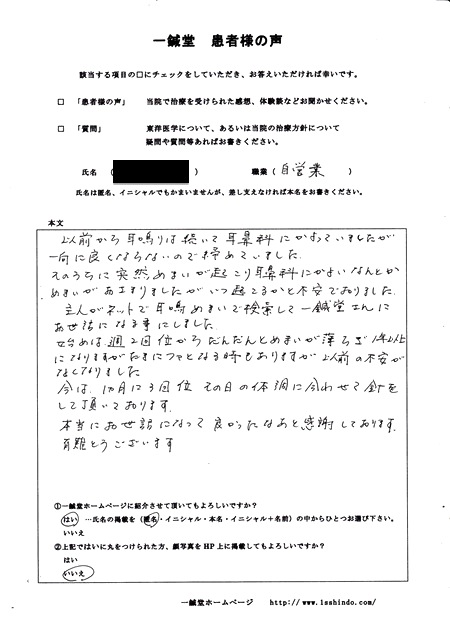 一鍼堂 患者様の声
該当する項目の□にチェックをしていただき、お答えいただければ幸いです。
□ 「患者様の声」 当院で治療を受けられた感想、体験談などお聞かせください。
□ 「質問」 東洋医学について、あるいは当院の治療方針について
疑問や質問等あればお書きください。
氏名 ( ) 職業 ( 自営業 )
氏名は匿名、イニシャルでもかまいませんが、差し支えなければ本名をお書きください。
本文
以前から耳鳴りは続いて耳鼻科にかよっていましたが
一向に良くならないので諦めていました。
そのうちに突然めまいが起こり耳鼻科にかよいなんとか
めまいがおさまりましたがいつ起こるかと不安でおりました。
主人がネットで耳鳴めまいで検索して一鍼堂さんに
お世話になる事にしました。
始めは、週2回位からだんだんとめまいが薄らぎ1年以上
になりますがたまにフワッとなる時もありますが以前の不安が
なくなりました
今は、1カ月に3回位その日の体調に合わせて針を
して頂いております。
本当にお世話になって良かったなあと感謝しております。
有難とうございます
①一鍼堂ホームページに紹介させて頂いてもよろしいですか？
はい …氏名の掲載を（匿名・イニシャル・本名・イニシャル＋名前）の中からひとつお選び下さい。
いいえ
②上記ではいに丸をつけられた方、顔写真をHP上に掲載してもよろしいですか？
はい
いいえ
一鍼堂ホームページ http://www.1sshindo.com/